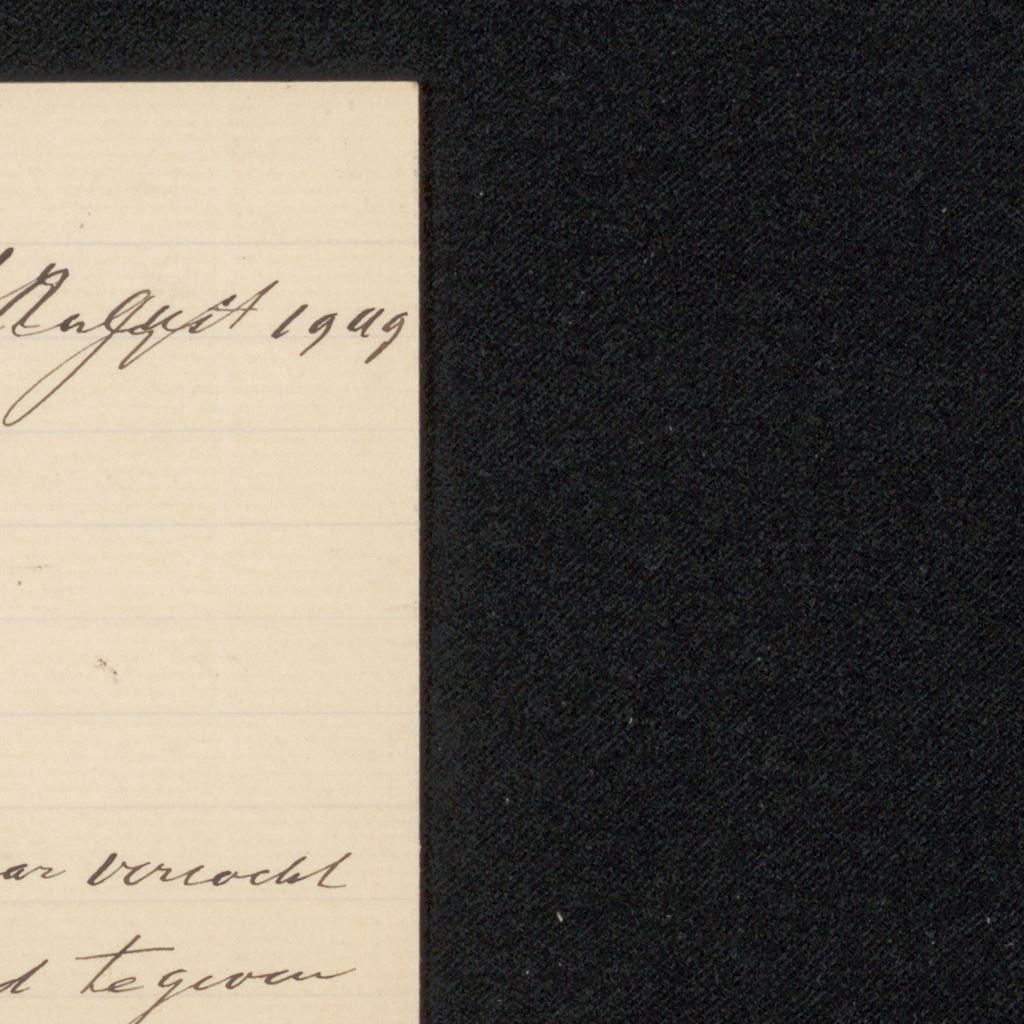 August 1909
verzocht
te geven